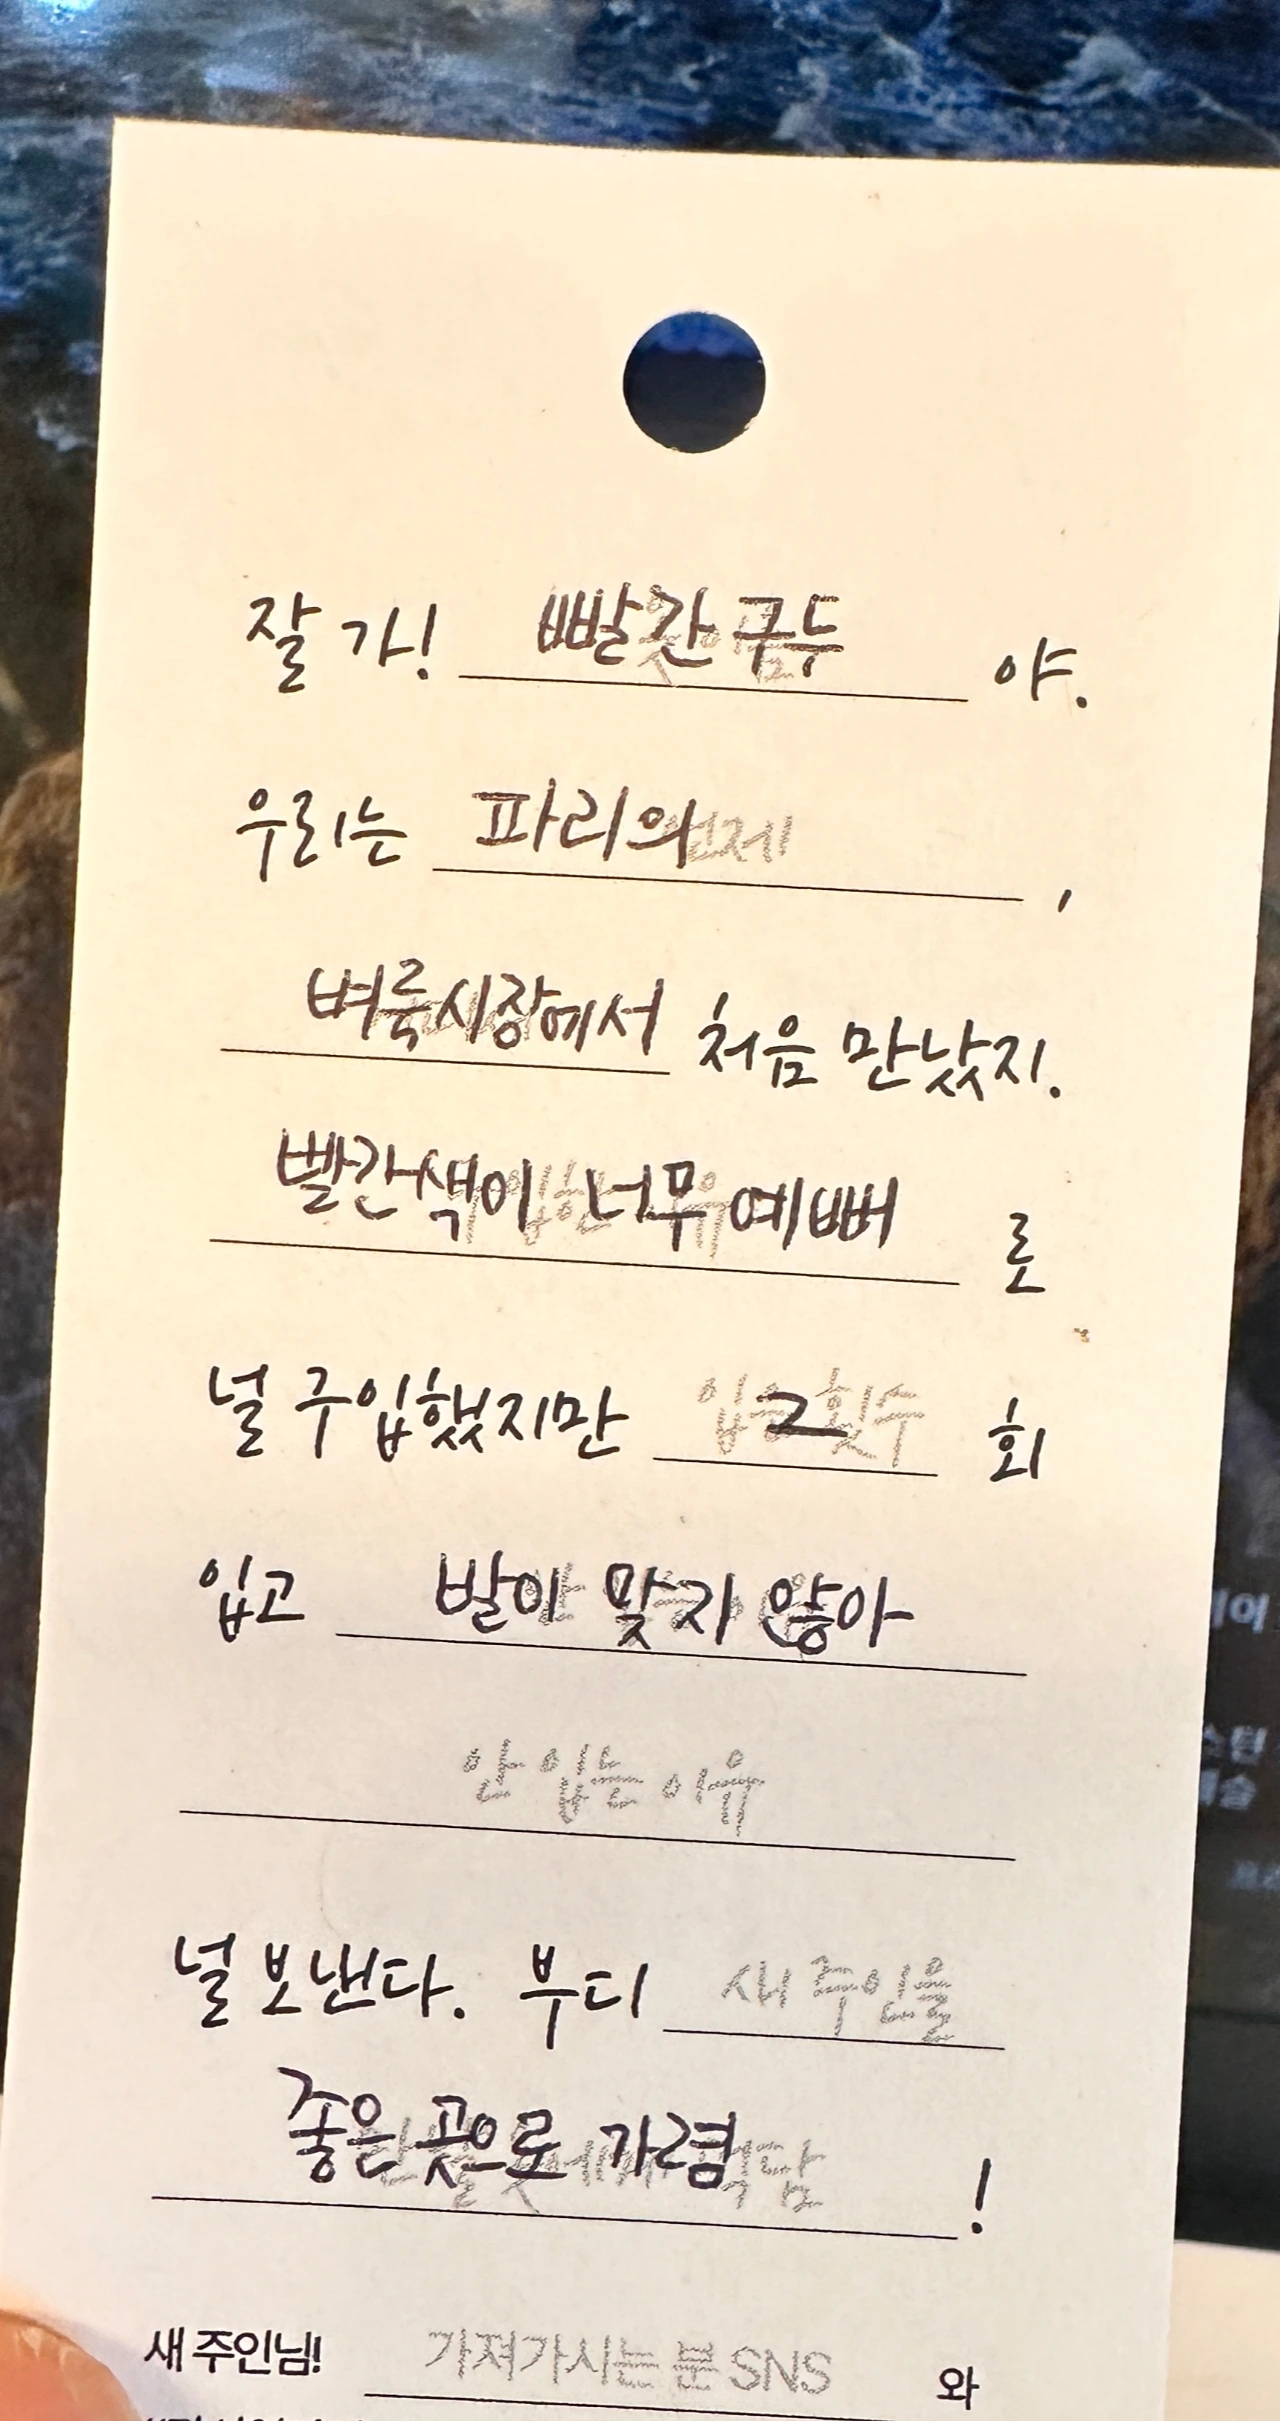 잘 가! 빨간 구두 야.
우리는 파리의 언제 ,
벼룩시장에서 처음 만났지.
빨간색이 너무 예뻐 로
널 구입했지만 2 입은횟수 회
입고 발이 맞지 않아
안 입는 이유
널 보낸다. 부디 새 주인을
좋은 곳으로 가렴 !
새 주인님! 가져가시는 분 SNS 와